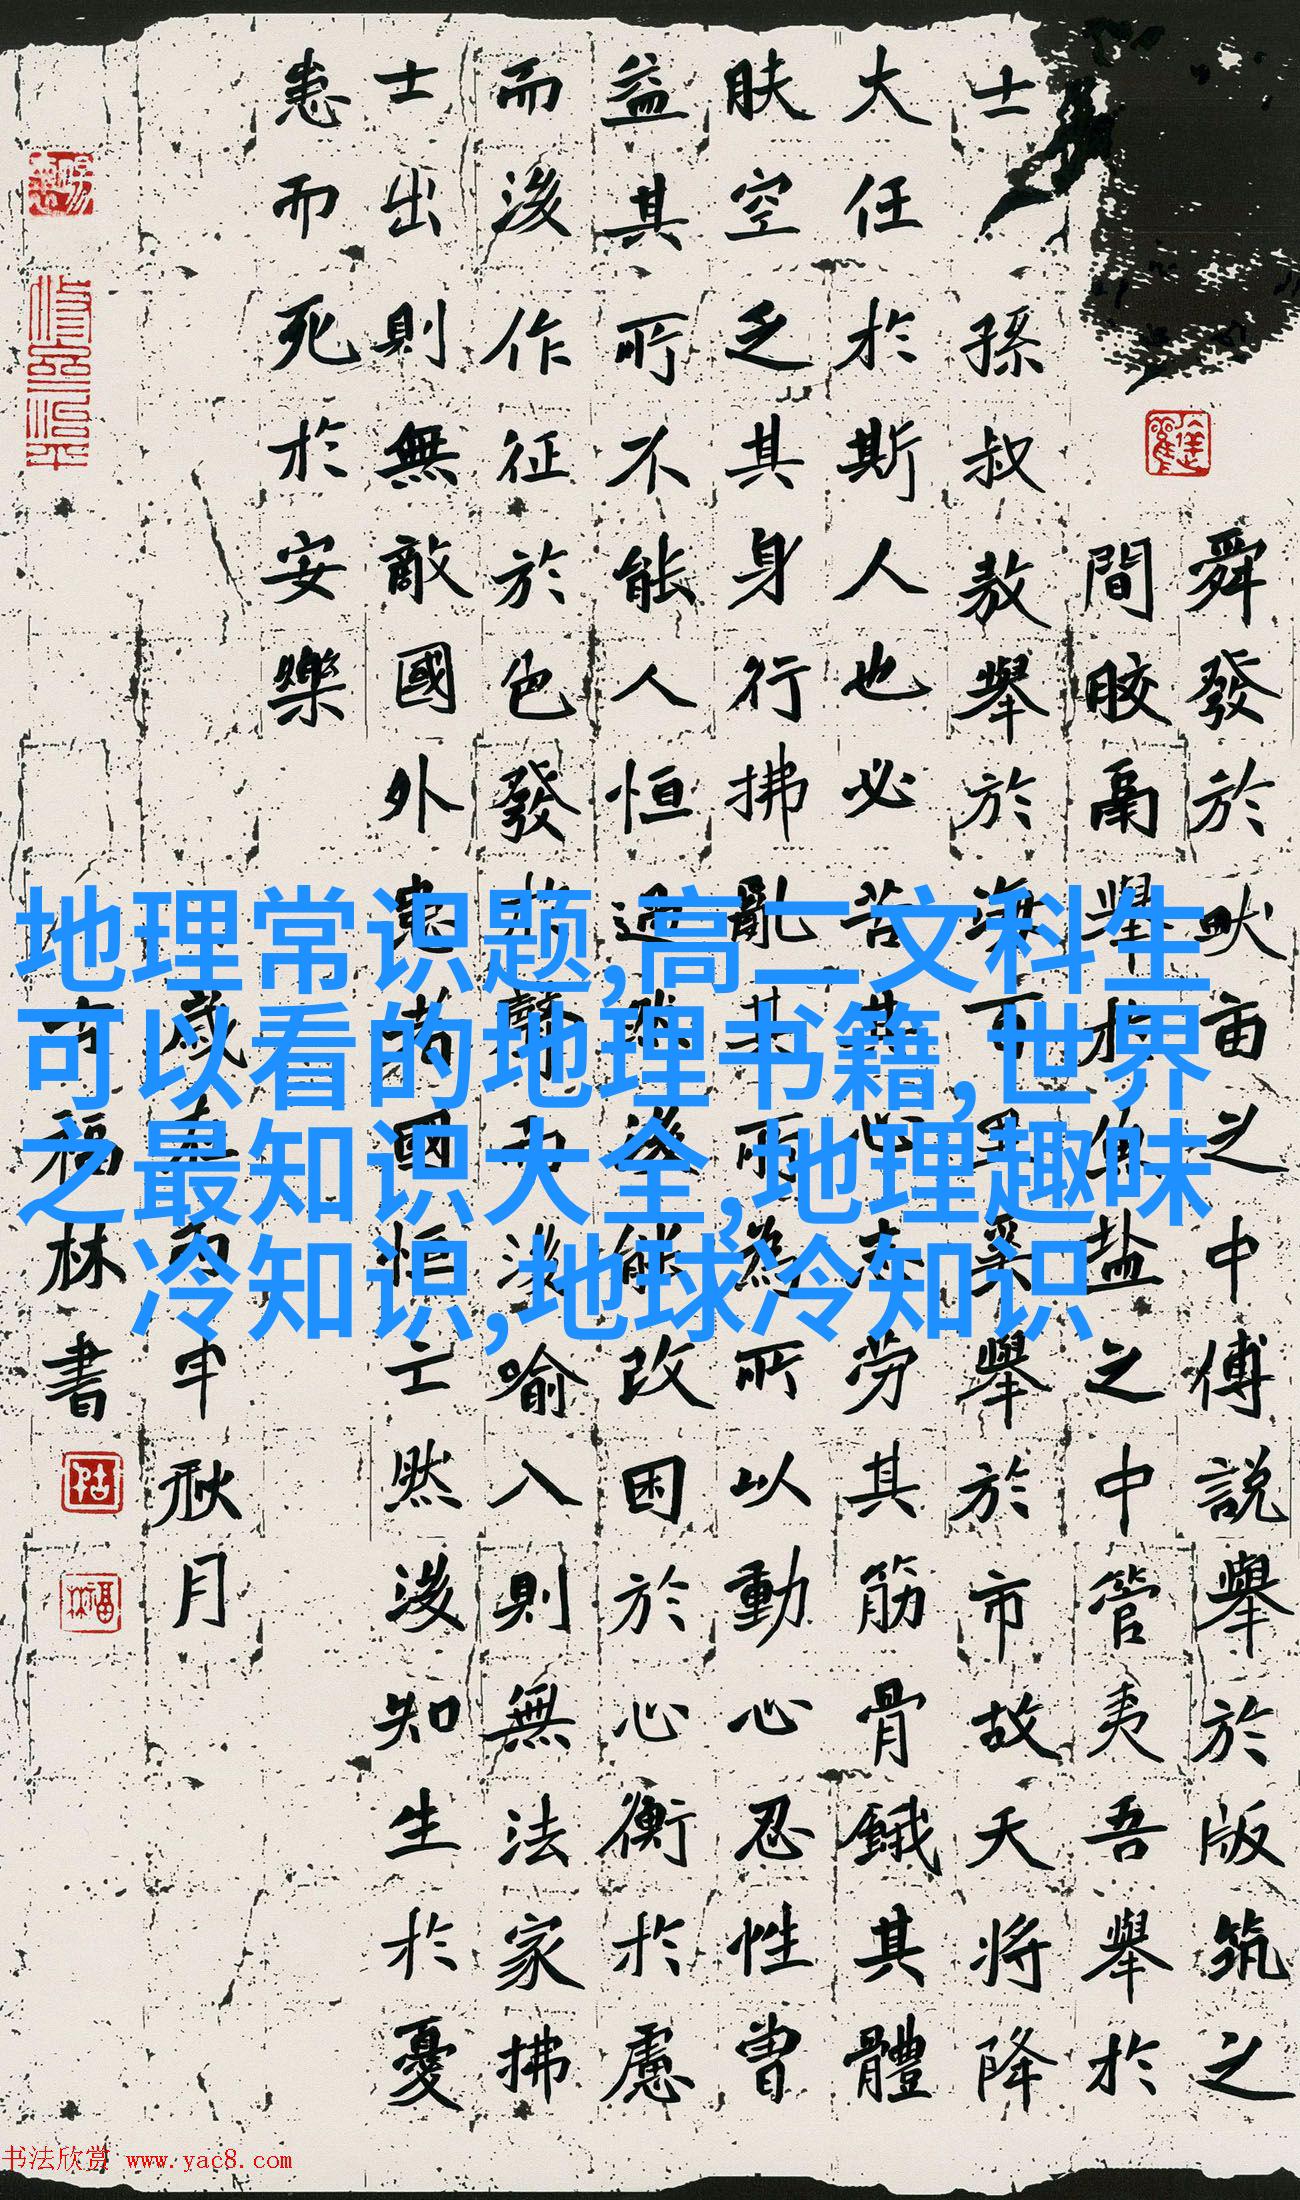 舜發於畎亩之中傅説舉於版筑之
間膠鬲舉於魚盐之中管夷吾舉於
士孫叔敖舉於海百里奚舉於市故天將降
大任於斯人也必苦其心志劳其筋骨餓其體
肤空乏其身行拂亂其所為所以動心忍性曾
益其所不能人恒過然後能改困於心衡於慮
而後作征於色發於聲而後喻入則無法家拂
士出則無敵國外患者國恒亡然後知生於憂
患而死於安樂
歲在丙申秋月
福林書
地理常识题,高二文科生
可以看的地理书籍,世界
之最知识大全,地理趣味
冷知识,地球冷知识
书法欣赏 www.yac8.com